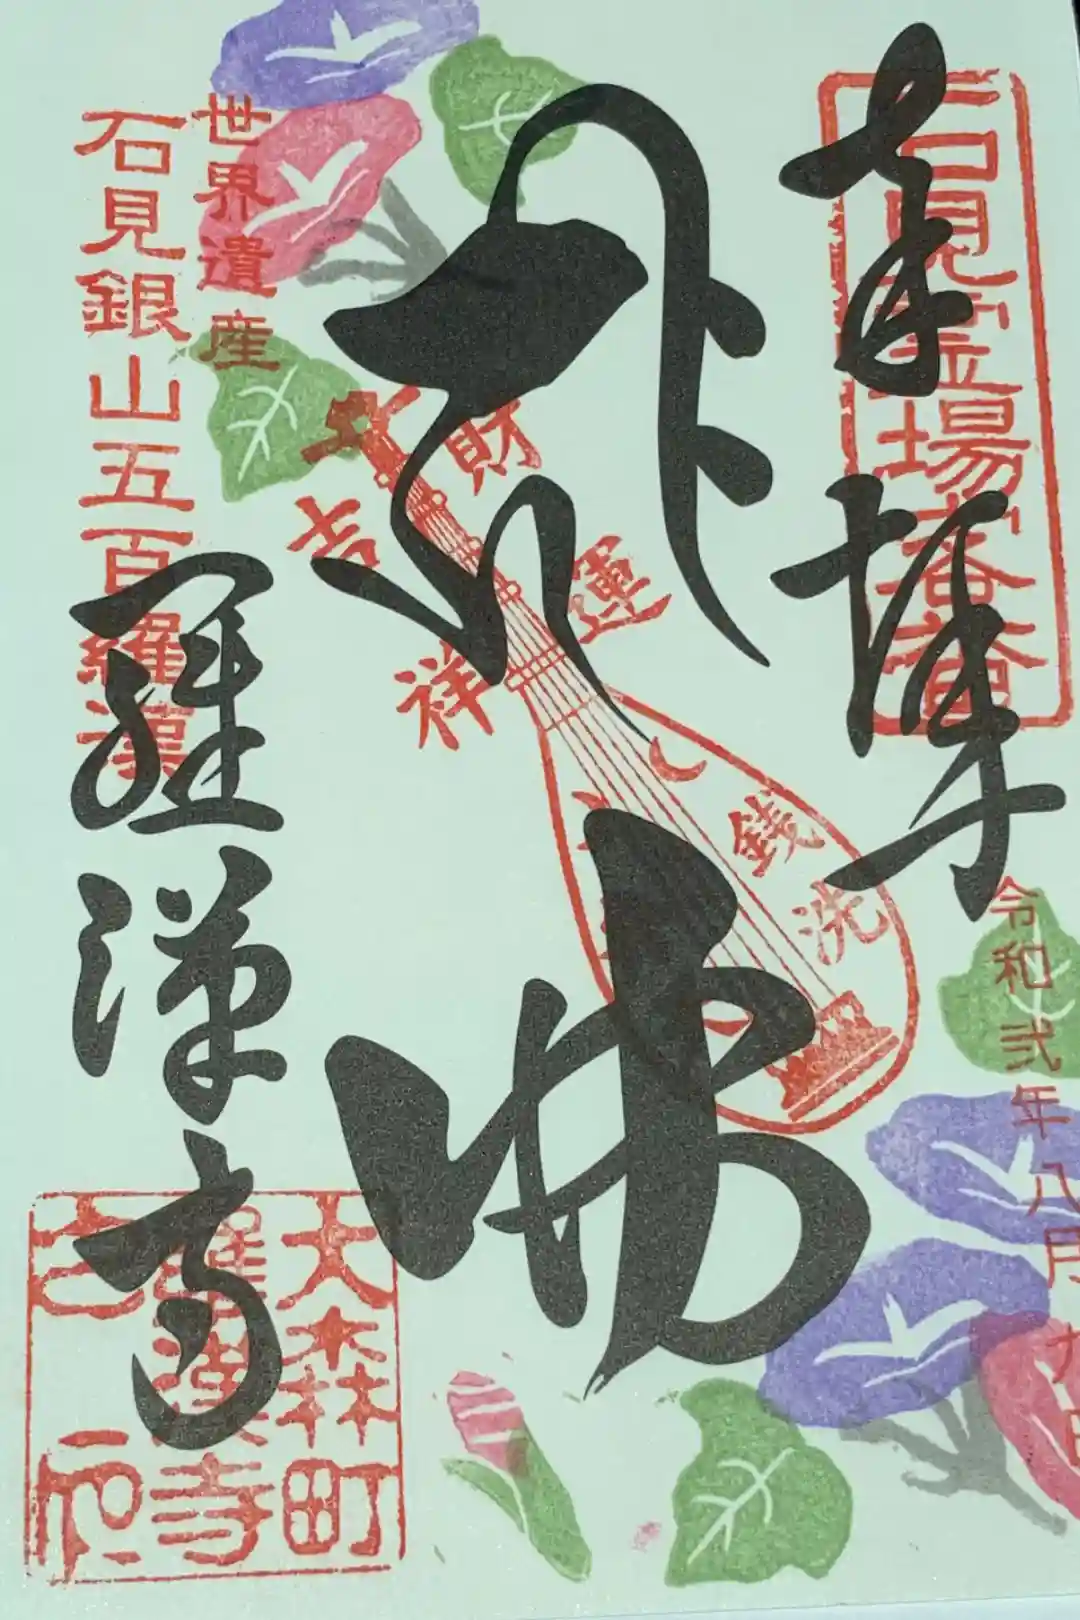 奉拝
石見霊場客番
令和弐年八月九日
財運
吉祥
銭洗
佛
世界遺産
石見銀山五百羅漢
羅漢寺
大森町
羅漢寺
之印